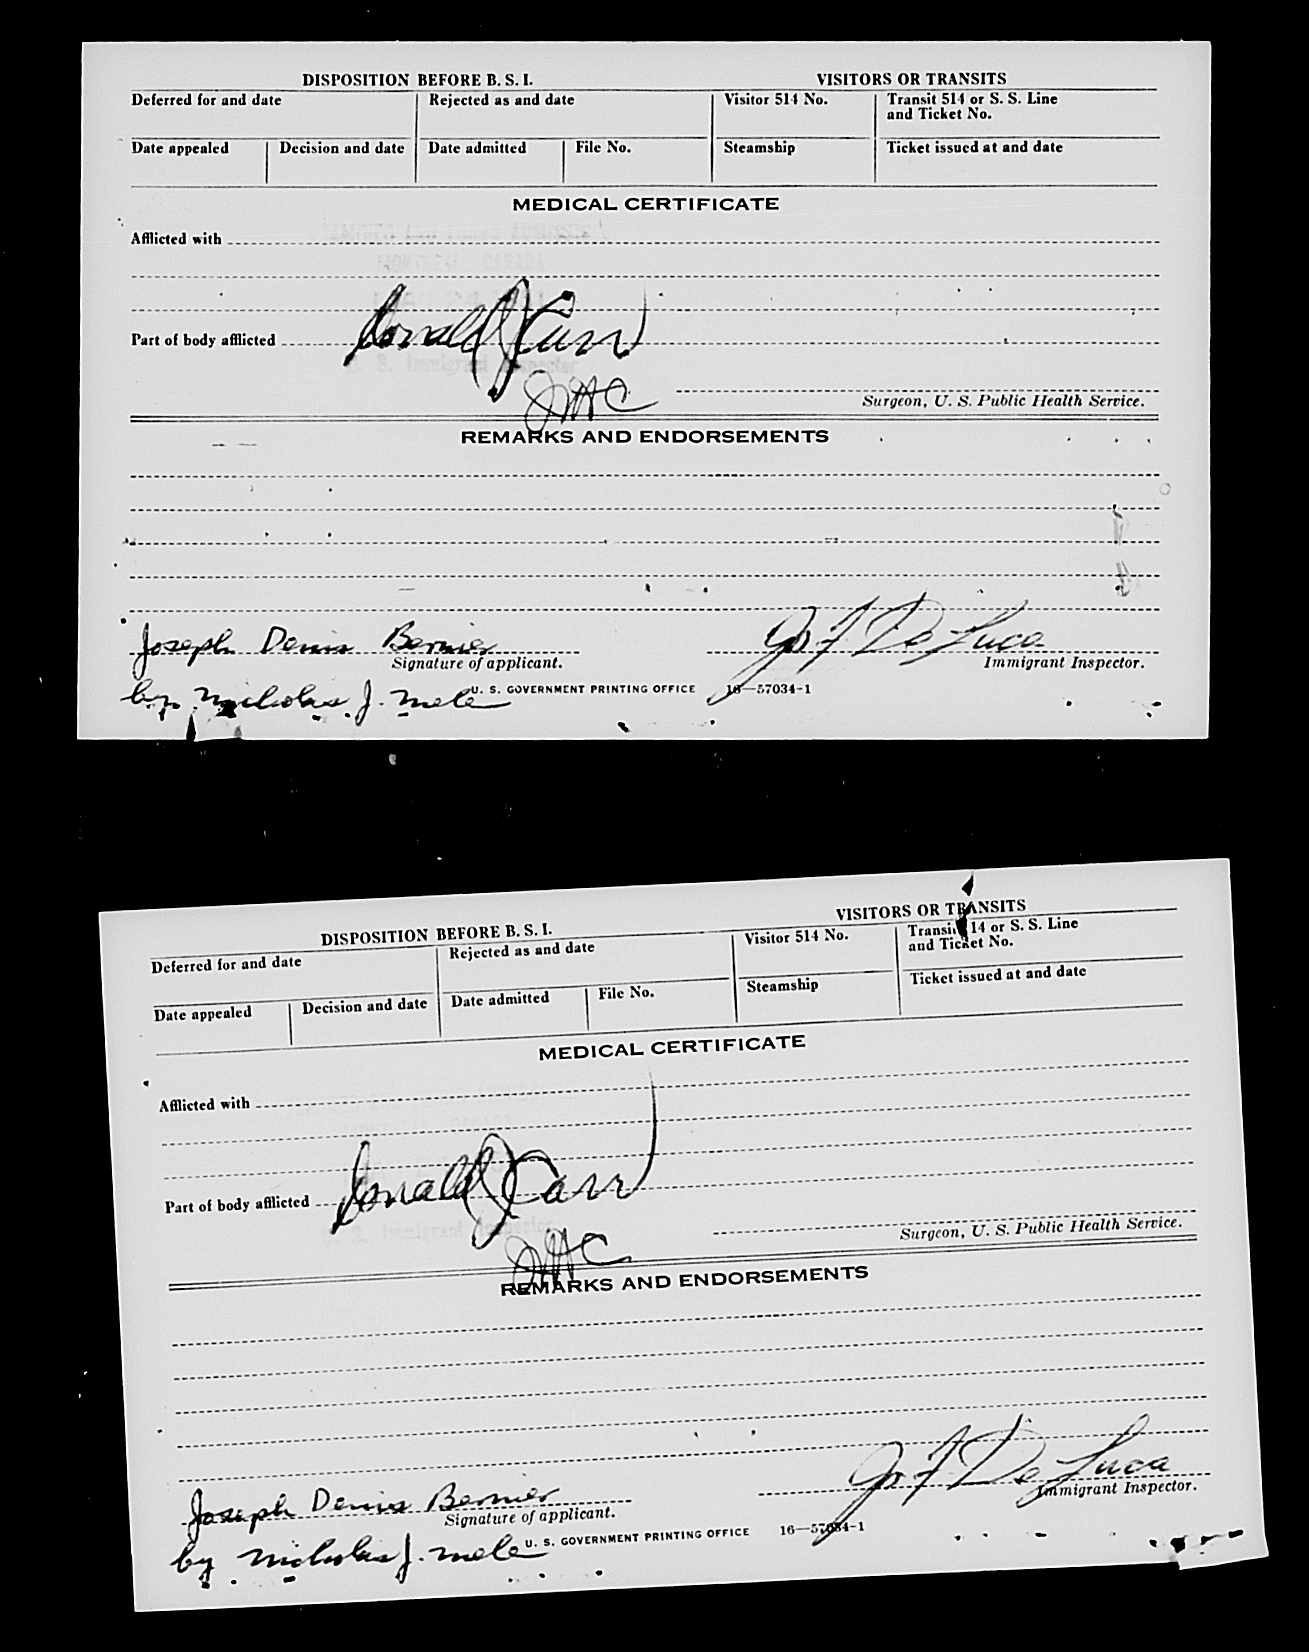 DISPOSITION BEFORE B. S. I. VISITORS OR TRANSITS
Deferred for and date Rejected as and date Visitor 514 No. Transit 514 or S. S. Line
and Ticket No.
Date appealed Decision and date Date admitted File No. Steamship Ticket issued at and date
MEDICAL CERTIFICATE
Afflicted with
Part of body afflicted Donald J Carr
U. S. Immigrant Inspector
JHC
Surgeon, U. S. Public Health Service.
REMARKS AND ENDORSEMENTS
Joseph Denis Bernier Jos F De Luca
Signature of applicant. Immigrant Inspector.
by Nicholas J. Mele U. S. GOVERNMENT PRINTING OFFICE 16—57034-1
DISPOSITION BEFORE B. S. I. VISITORS OR TRANSITS
Deferred for and date Rejected as and date Visitor 514 No. Transit 514 or S. S. Line
and Ticket No.
Date appealed Decision and date Date admitted File No. Steamship Ticket issued at and date
MEDICAL CERTIFICATE
Afflicted with
Part of body afflicted Donald J Carr
U. S. Immigrant Inspector
JHC
Surgeon, U. S. Public Health Service.
REMARKS AND ENDORSEMENTS
Joseph Denis Bernier Jos F De Luca
Signature of applicant. Immigrant Inspector.
by Nicholas J. Mele U. S. GOVERNMENT PRINTING OFFICE 16—57034-1